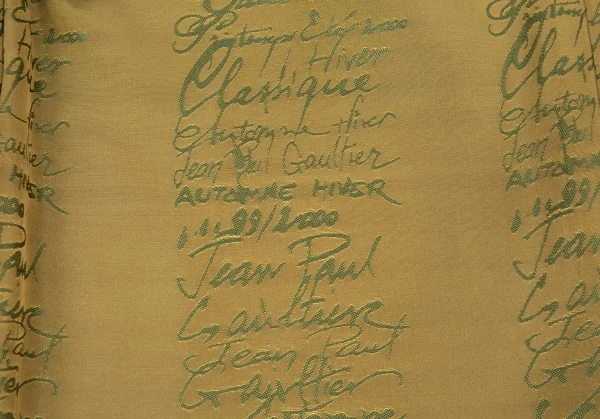 Printemps Eté 2000
Hiver
Classique
Automne Hiver
Jean Paul Gaultier
AUTOMNE HIVER
99/2000
Jean Paul
Gaultier
Jean Paul
Gaultier